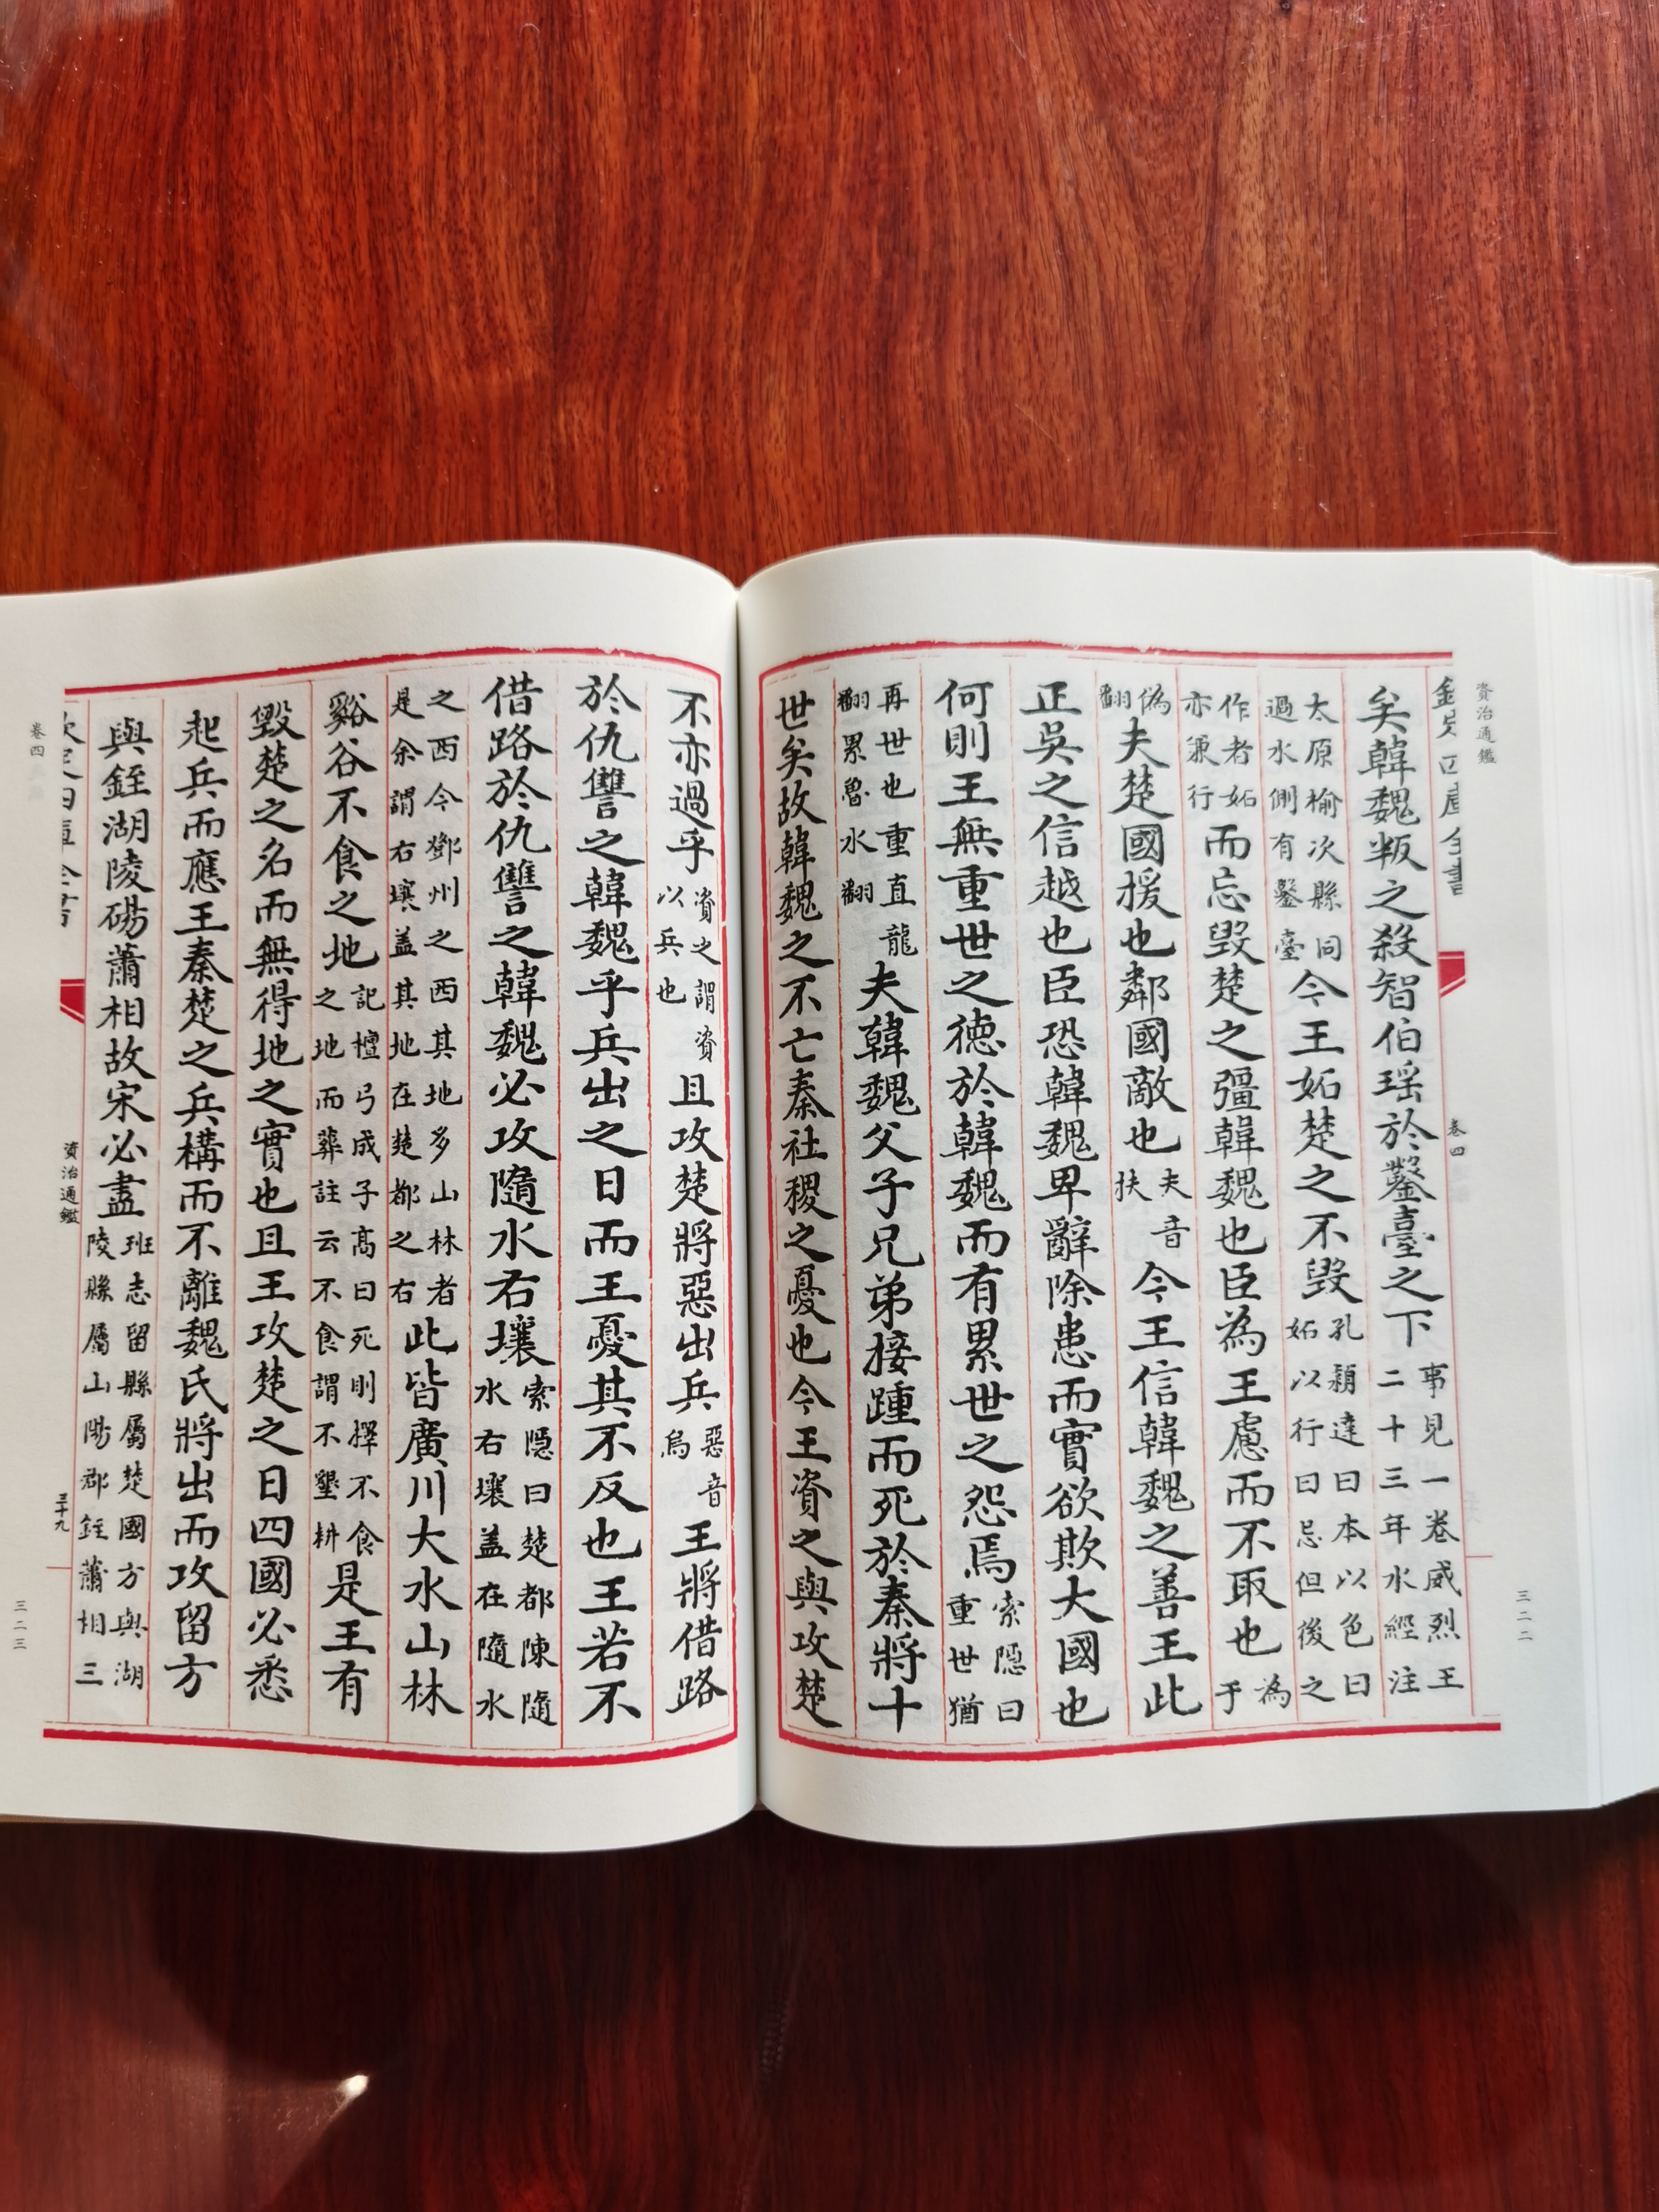 資治通鑑
卷四
三二二
欽定四庫全書
矣韓魏叛之殺智伯瑶於鑿臺之下事見一卷威烈王二十三年水經注
太原榆次縣同過水側有鑿臺今王妬楚之不毀孔頴達曰本以色曰妬以行曰忌但後之
作者妬亦兼行而忘毀楚之彊韓魏也臣為王慮而不取也為于
偽翻夫楚國援也鄰國敵也夫音扶今王信韓魏之善王此
正吳之信越也臣恐韓魏卑辭除患而實欲欺大國也
何則王無重世之德於韓魏而有累世之怨焉索隱曰重世猶
再世也重直龍翻累魯水翻夫韓魏父子兄弟接踵而死於秦將十
世矣故韓魏之不亡秦社稷之憂也今王資之與攻楚
不亦過乎資之謂資以兵也且攻楚將惡出兵惡音烏王將借路
於仇讐之韓魏乎兵出之日而王憂其不反也王若不
借路於仇讐之韓魏必攻隨水右壤索隱曰楚都陳隨水右壤盖在隨水
之西今鄧州之西其地多山林者是余謂右壤盖其地在楚都之右此皆廣川大水山林
谿谷不食之地記檀弓成子高曰死則擇不食之地而葬註云不食謂不墾耕是王有
毀楚之名而無得地之實也且王攻楚之日四國必悉
起兵而應王秦楚之兵構而不離魏氏將出而攻留方
與銍湖陵碭蕭相故宋必盡班志留縣屬楚國方與湖陵縣屬山陽郡銍蕭相三
欽定四庫全書
資治通鑑
三十九
卷四
三二三